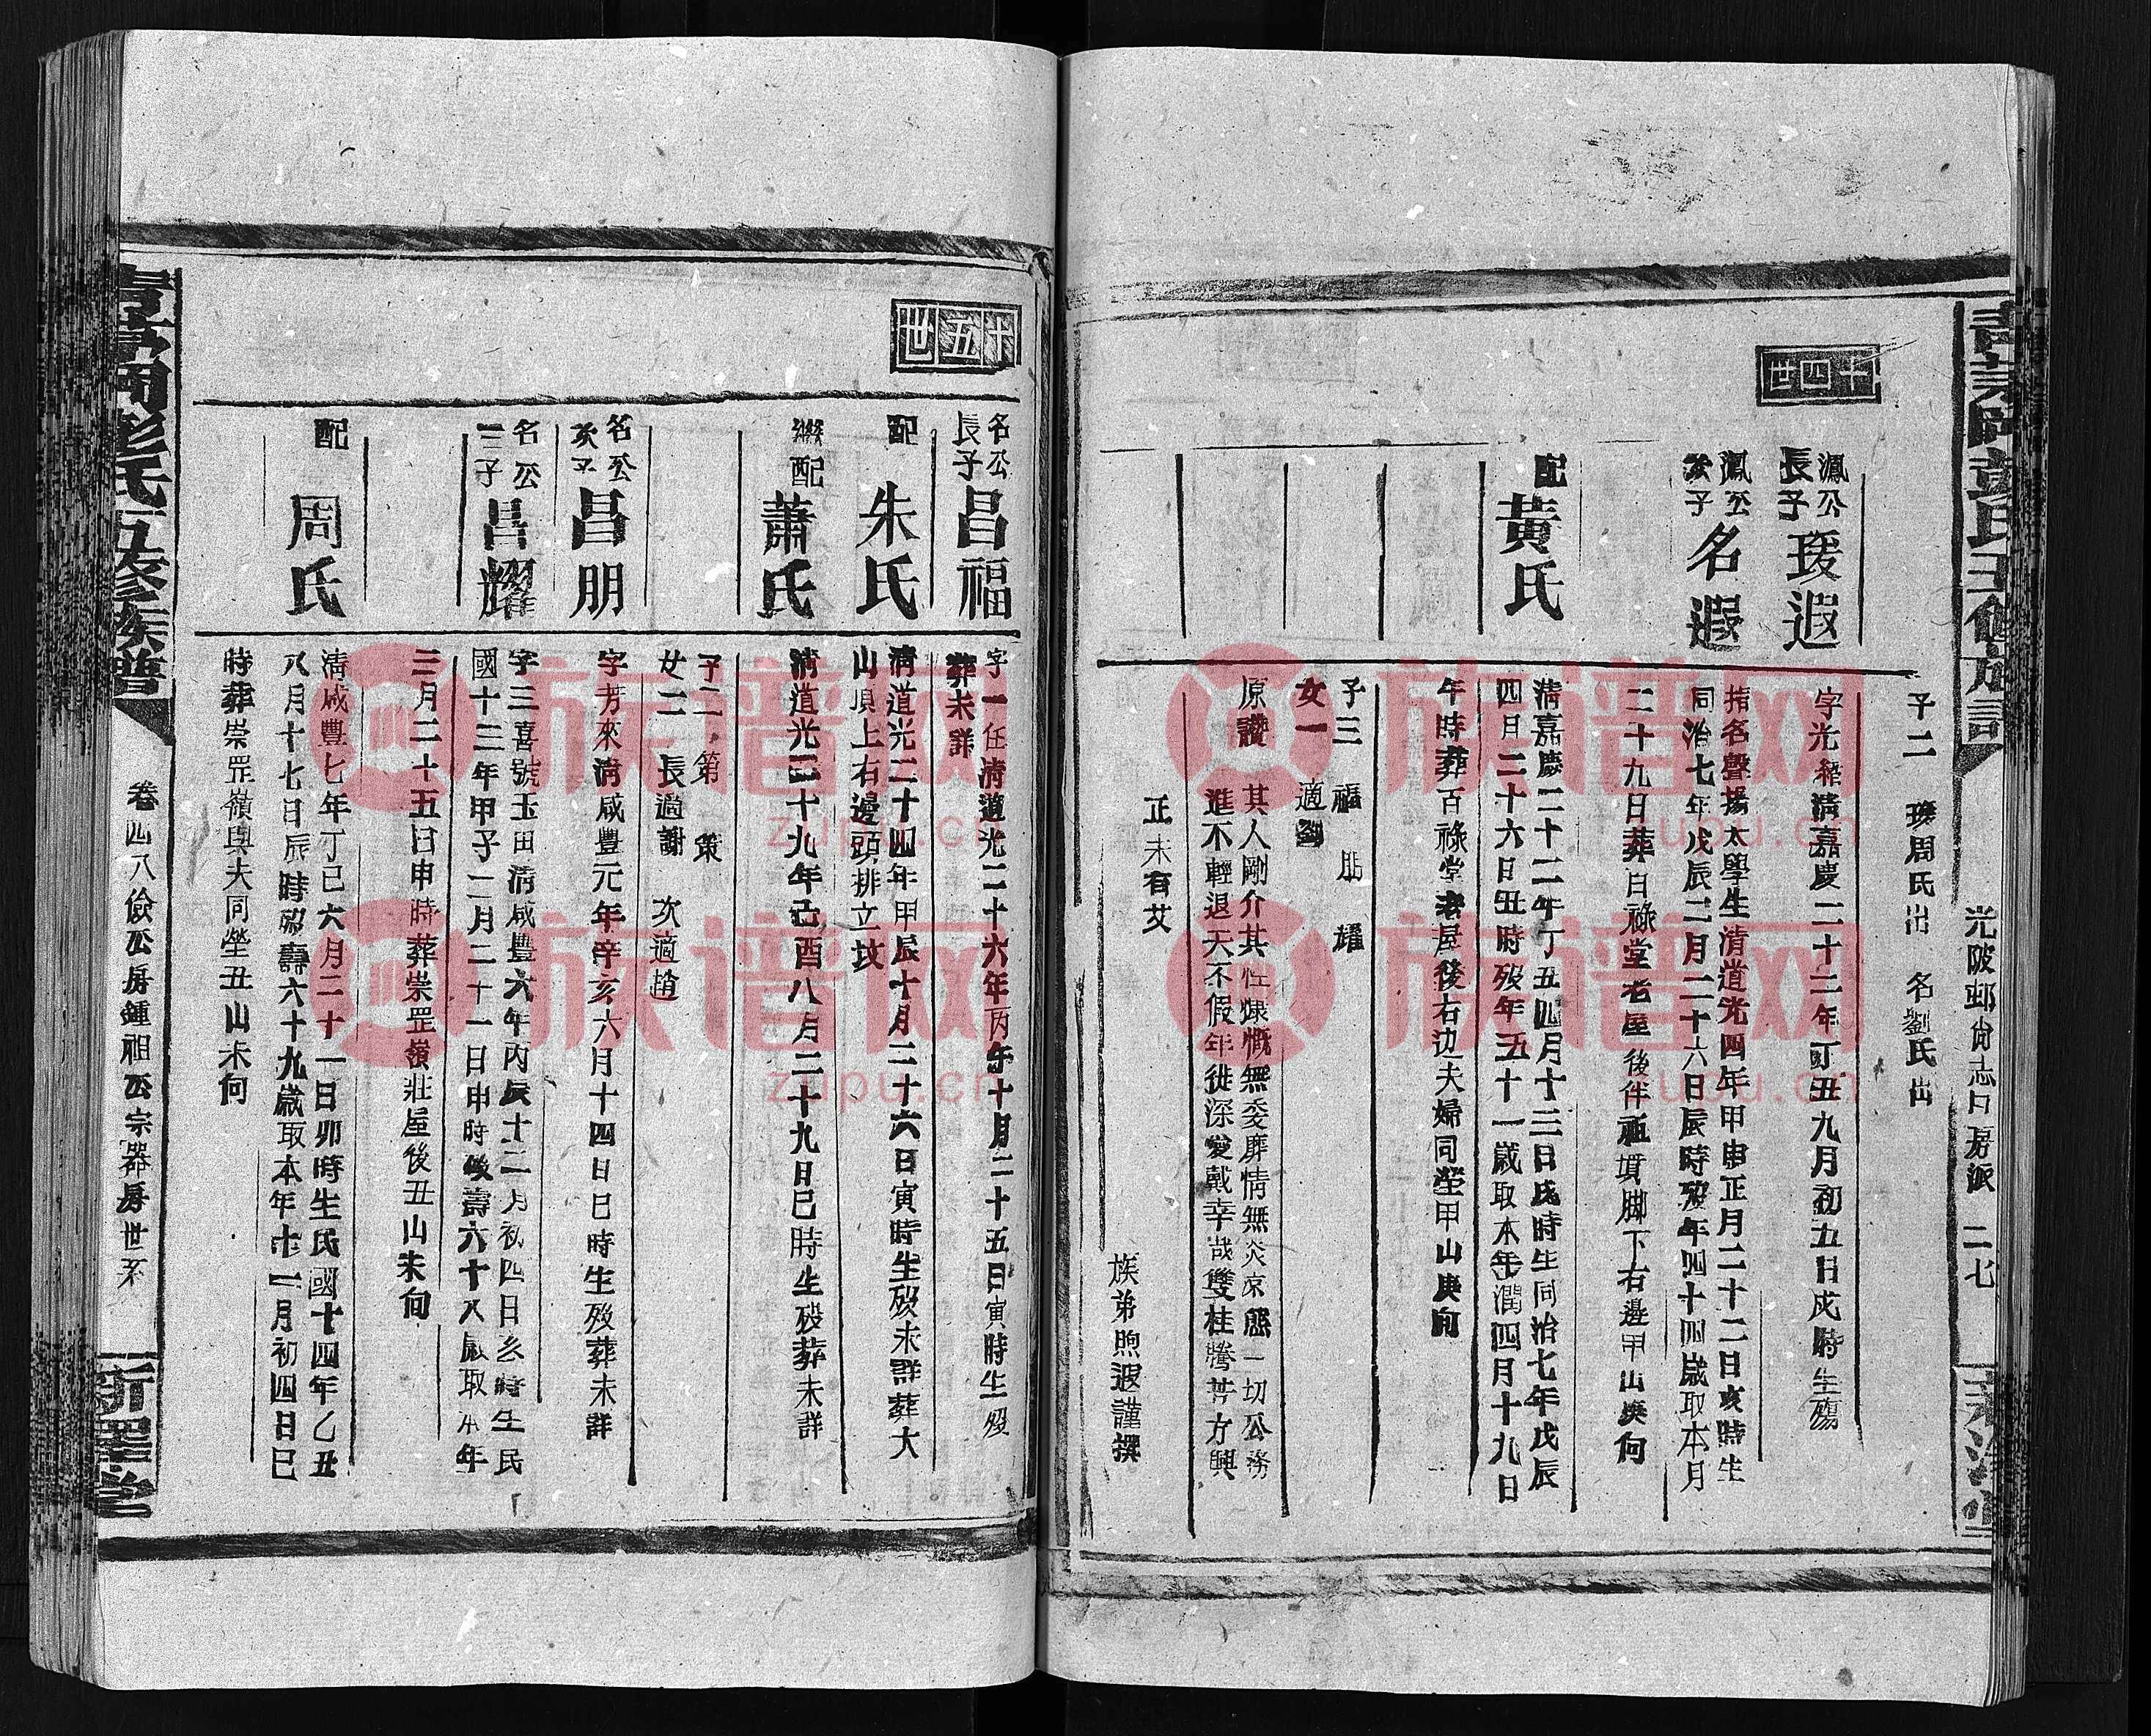 光陂邨尙志日房派 二七
十四世
子二 瑗周氏出 名劉氏出
鳳公長子瑗遐
字光繹淸嘉慶二十二年丁丑九月初五日戌時生殤
鳳公次子名遐
捐名聲揚太學生清道光四年甲申正月二十二日亥時生
同治七年戊辰二月二十六日辰時歿年四十四歲取本月
二十九日葬百祿堂老屋後伴祖墳脚下右邊甲山庚向
配黃氏
淸嘉慶二十二年丁丑四月十三日辰時生同治七年戊辰
四月二十六日丑時歿年五十一歲取本年潤四月十九日
午時葬百祿堂老屋後右边夫婦同塋甲山庚向
子三 福 朋 耀
女一 適劉
原讚 其人剛介其性慷慨無委靡情無炎凉態一切公務
進不輕退天不假年徙深愛戴幸哉雙桂騰芳方興
正未有艾
族弟煦遐謹撰
十五世
名公長子昌福
字一任淸道光二十六年丙午十月二十五日寅時生歿
葬未詳
配朱氏
淸道光二十四年甲辰十月二十六日寅時生歿未詳葬大
山頂上右邊頭排立坟
繼配蕭氏
淸道光二十九年己酉八月二十九日巳時生歿葬未詳
子二 第 策
女二 長適謝 次適趙
名公次子昌朋
字芳來淸咸豐元年辛亥六月十四日巳時生歿葬未詳
名公三子昌耀
字三喜號玉田淸咸豐六年丙辰十二月初四日亥時生民
國十三年甲子二月二十一日申時歿壽六十八歲取本年
三月二十五日申時葬崇罡嶺莊屋後丑山未向
配周氏
淸咸豐七年丁巳六月二十一日卯時生民國十四年乙丑
八月十七日辰時歿壽六十九歲取本年十一月初四日巳
時葬崇罡嶺與夫同塋丑山未向
彭氏五修族譜
卷四八儉公房鍾祖公宗器房世系
族谱网
zupu.cn
族谱网
zupu.cn
族谱网
zupu.cn
族谱网
zupu.cn